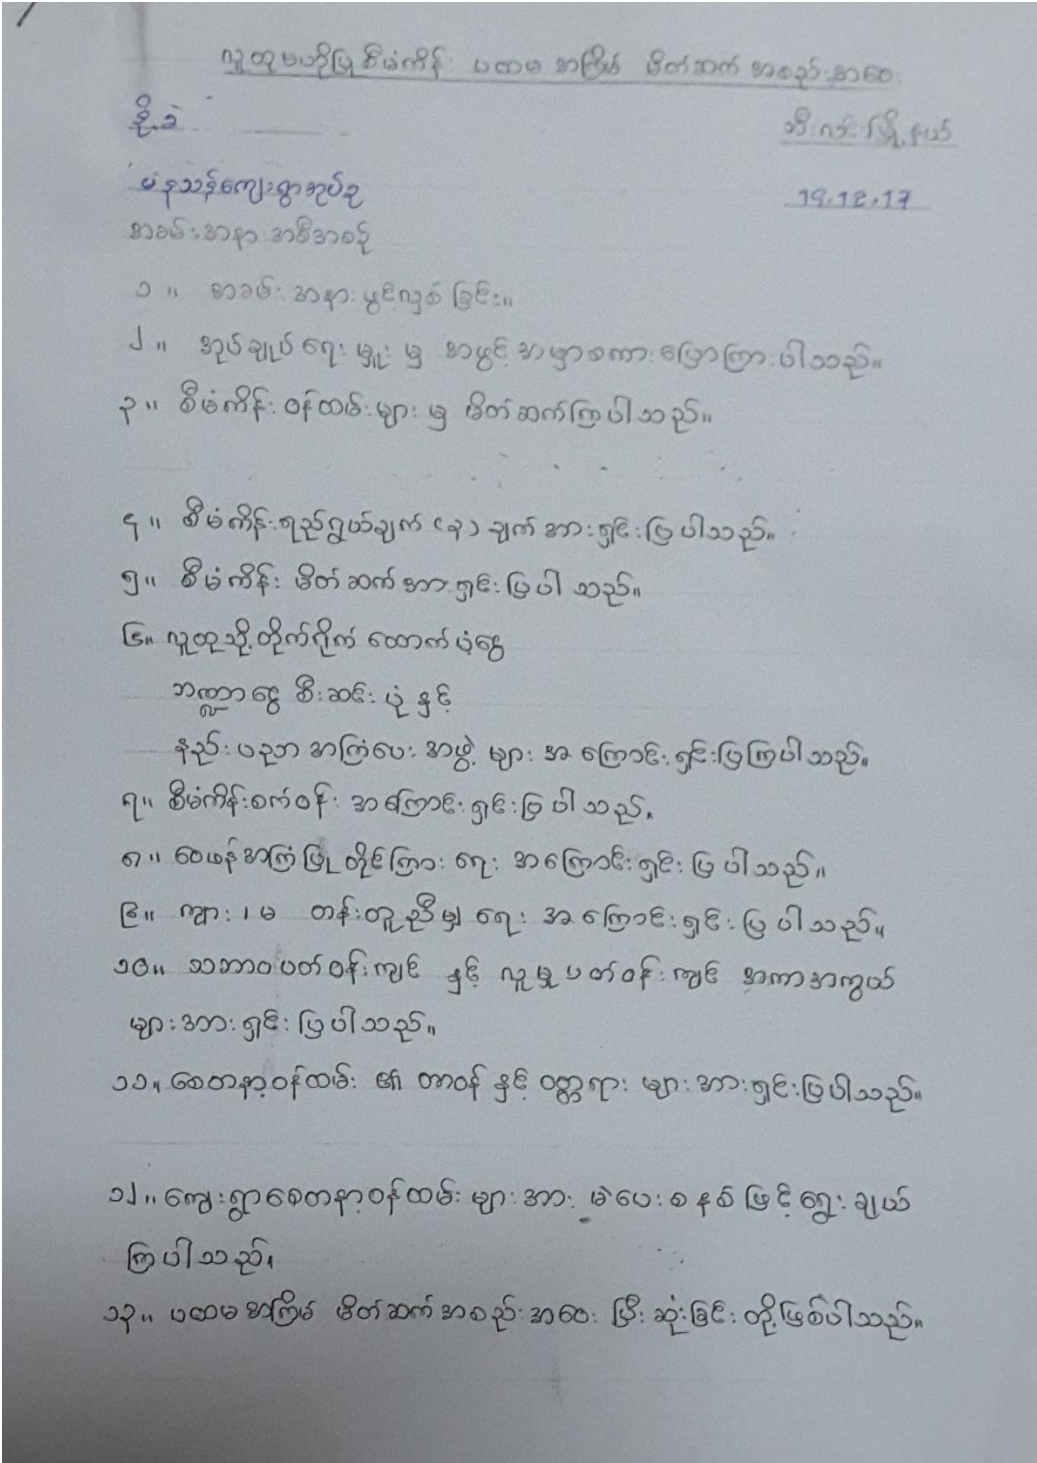 လူထုဗဟိုပြုစီမံကိန်း ပထမ အကြိမ် မိတ်ဆက် အစည်းအဝေး
နို့ခဲ
သီးကုန်းမြို့နယ်
မုံနသန်ကျေးရွာအုပ်စု
19.12.17
အခမ်းအနား အစီအစဉ်
၁ ။ အခမ်းအနား ဖွင့်လှစ်ခြင်း။
၂ ။ အုပ်ချုပ်ရေးမှူး မှ အဖွင့်အမှာစကား ပြောကြားပါသည်။
၃ ။ စီမံကိန်းဝန်ထမ်းများ မှ မိတ်ဆက်ကြပါသည်။
၄ ။ စီမံကိန်းရည်ရွယ်ချက် (၃) ချက်အားရှင်းပြပါသည်။
၅ ။ စီမံကိန်း မိတ်ဆက်အားရှင်းပြပါသည်။
၆။ လူထုသို့တိုက်ရိုက် ထောက်ပံ့ငွေ
ဘဏ္ဍာငွေ စီးဆင်းပုံ နှင့်
နည်းပညာအကြံပေးအဖွဲ့များ အကြောင်းရှင်းပြကြပါသည်။
၇။ စီမံကိန်းစက်ဝန်း အကြောင်းရှင်းပြပါသည်။
၈ ။ ဝေဖန်အကြံပြုတိုင်ကြားရေး အကြောင်းရှင်းပြပါသည်။
၉။ ကျား ၊ မ တန်းတူညီမျှရေး အကြောင်းရှင်းပြပါသည်။
၁၀။ သဘာဝပတ်ဝန်းကျင် နှင့် လူမှုပတ်ဝန်းကျင် အကာအကွယ်
များအားရှင်းပြပါသည်။
၁၁။ စေတနာ့ဝန်ထမ်း ၏ တာဝန် နှင့် ဝတ္တရားများအားရှင်းပြပါသည်။
၁၂။ ကျေးရွာစေတနာ့ဝန်ထမ်းများအား မဲပေးစနစ်ဖြင့်ရွေးချယ်
ကြပါသည်။
၁၃။ ပထမအကြိမ် မိတ်ဆက်အစည်းအဝေး ပြီးဆုံးခြင်းတို့ဖြစ်ပါသည်။